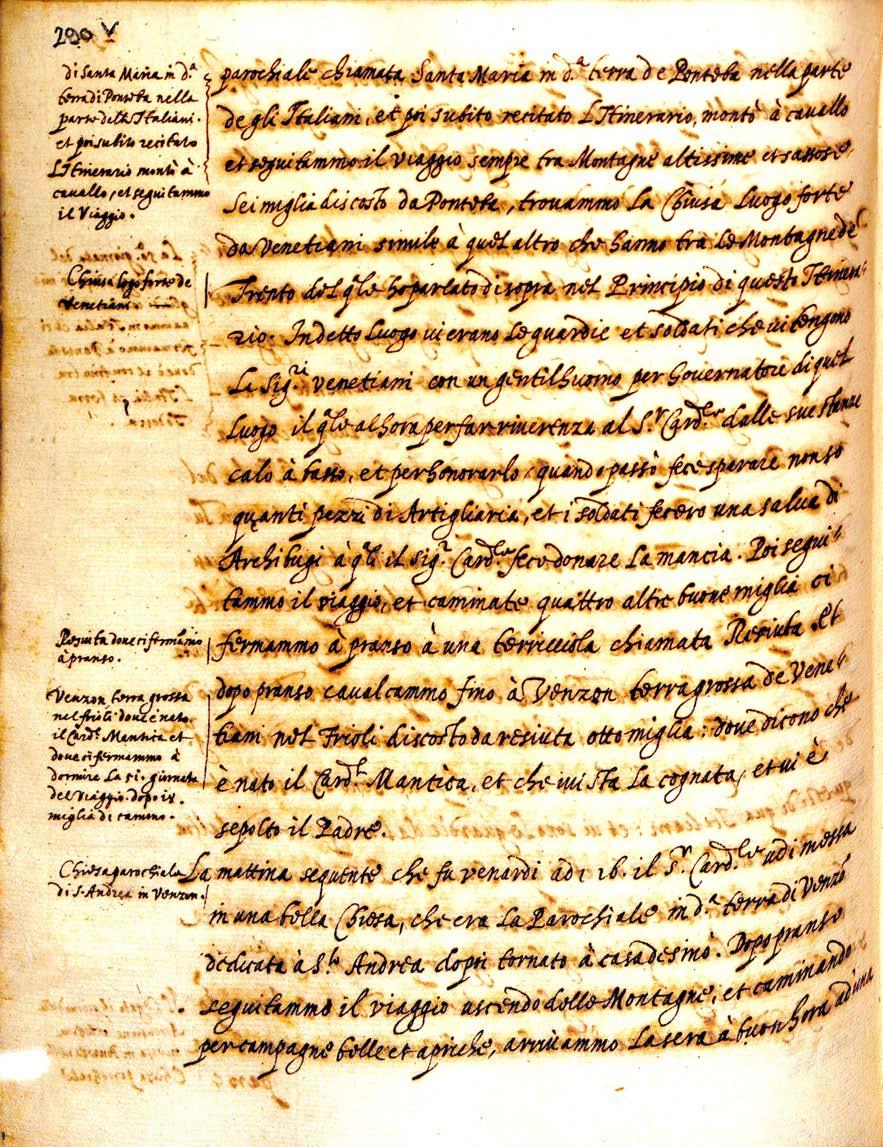 290 v
di Santa Maria in d.ª
terra di Ponteba nella
parte delli Italiani.
et poi subito recitato
L'Itinerario montò à
cavallo, et seguitammo
il Viaggio.
parochiale chiamata Santa Maria in d.ª terra de Ponteba nella parte
degli Italiani, et poi subito recitato L'Itinerario, montò à cavallo
et seguitammo il viaggio sempre tra Montagne altissime et sassose.
Sei miglia discosto da Ponteba, trovammo La Chiusa Luogo forte
da Venetiani simile à quel altro che hanno tra Le Montagne de
Chiusa logo forte de
Venetiani
Trento del qle ho parlato di sopra nel Principio di questo Itinera-
rio. In detto Luogo vi erano Le guardie et soldati che vi tengono
La Sig.ri venetiani con un gentilhuomo per Governatore di quel
Luogo il qle alhora per far riverenza al S.r Card.le dalle sue stanze
calò à basso, et per honorarlo quando passò fece sparare non so
quanti pezzi di Artigliaria, et i soldati fecero una salva di
Archibugi à qli il sig.r Card.le fece donare La mancia. Poi segui-
tammo il viaggio, et caminate quattro altre buone miglia ci
Resiuta dove ci fermamo
à pranso.
fermammo à pranso à una terricciola chiamata Resiuta. et
dopo pranso cavalcammo fino à Venzon terra grossa de Vene-
Venzon terra grossa
nel frioli dove è nato
il Card.l Mantica et
dove ci fermammo à
dormire La 51. giornata
del Viaggio. dopo 18.
miglia di camino.
tiani nel Frioli discosto da resiuta otto miglia: dove dicono che
è nato il Card.le Mantica, et che vi sta La cognata, et vi è
sepolto il Padre.
Chiesa parochiale
di S. Andrea in Venzon.
La mattina seguente che fu venardi adi 16. il S.r Card.le udi messa
in una bella Chiesa, che era La Parochiale in d.ª terra di Venzon
dedicata à S.to Andrea dopoi tornato à casa desinò. Dopo pranso
seguitammo il viaggio uscendo delle Montagne, et caminando
per campagne belle et apriche, arrivammo La sera à buon hora ad una